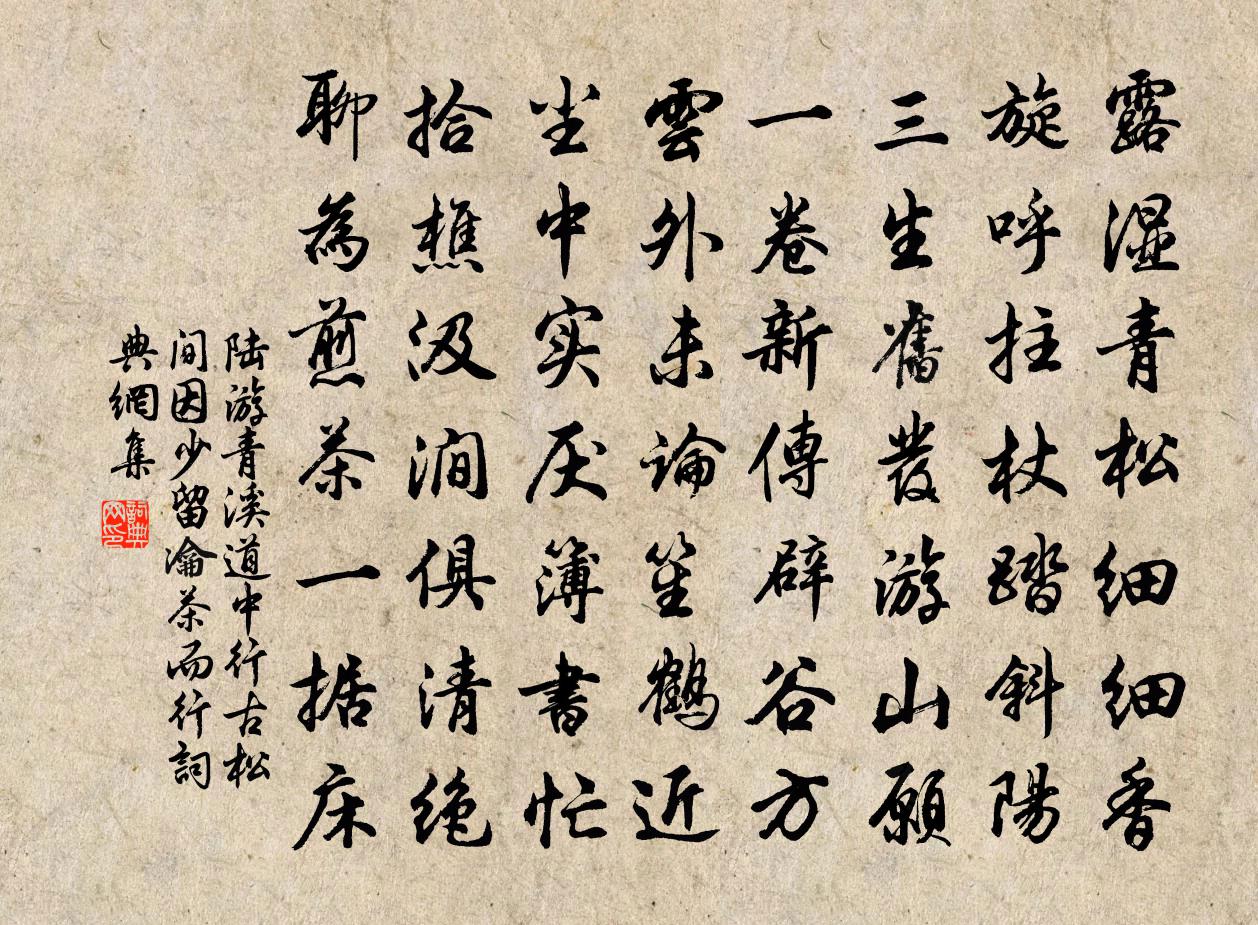 露湿青松细细香
旋呼拄杖踏斜陽
三生舊發游山願
一卷新傳辟谷方
雲外未論笙鶴近
尘中实厌簿書忙
拾樵汲涧俱清绝
聊為煎茶一据床
陆游青溪道中行古松
间因少留瀹茶而行詞
典網集
詞典
网印